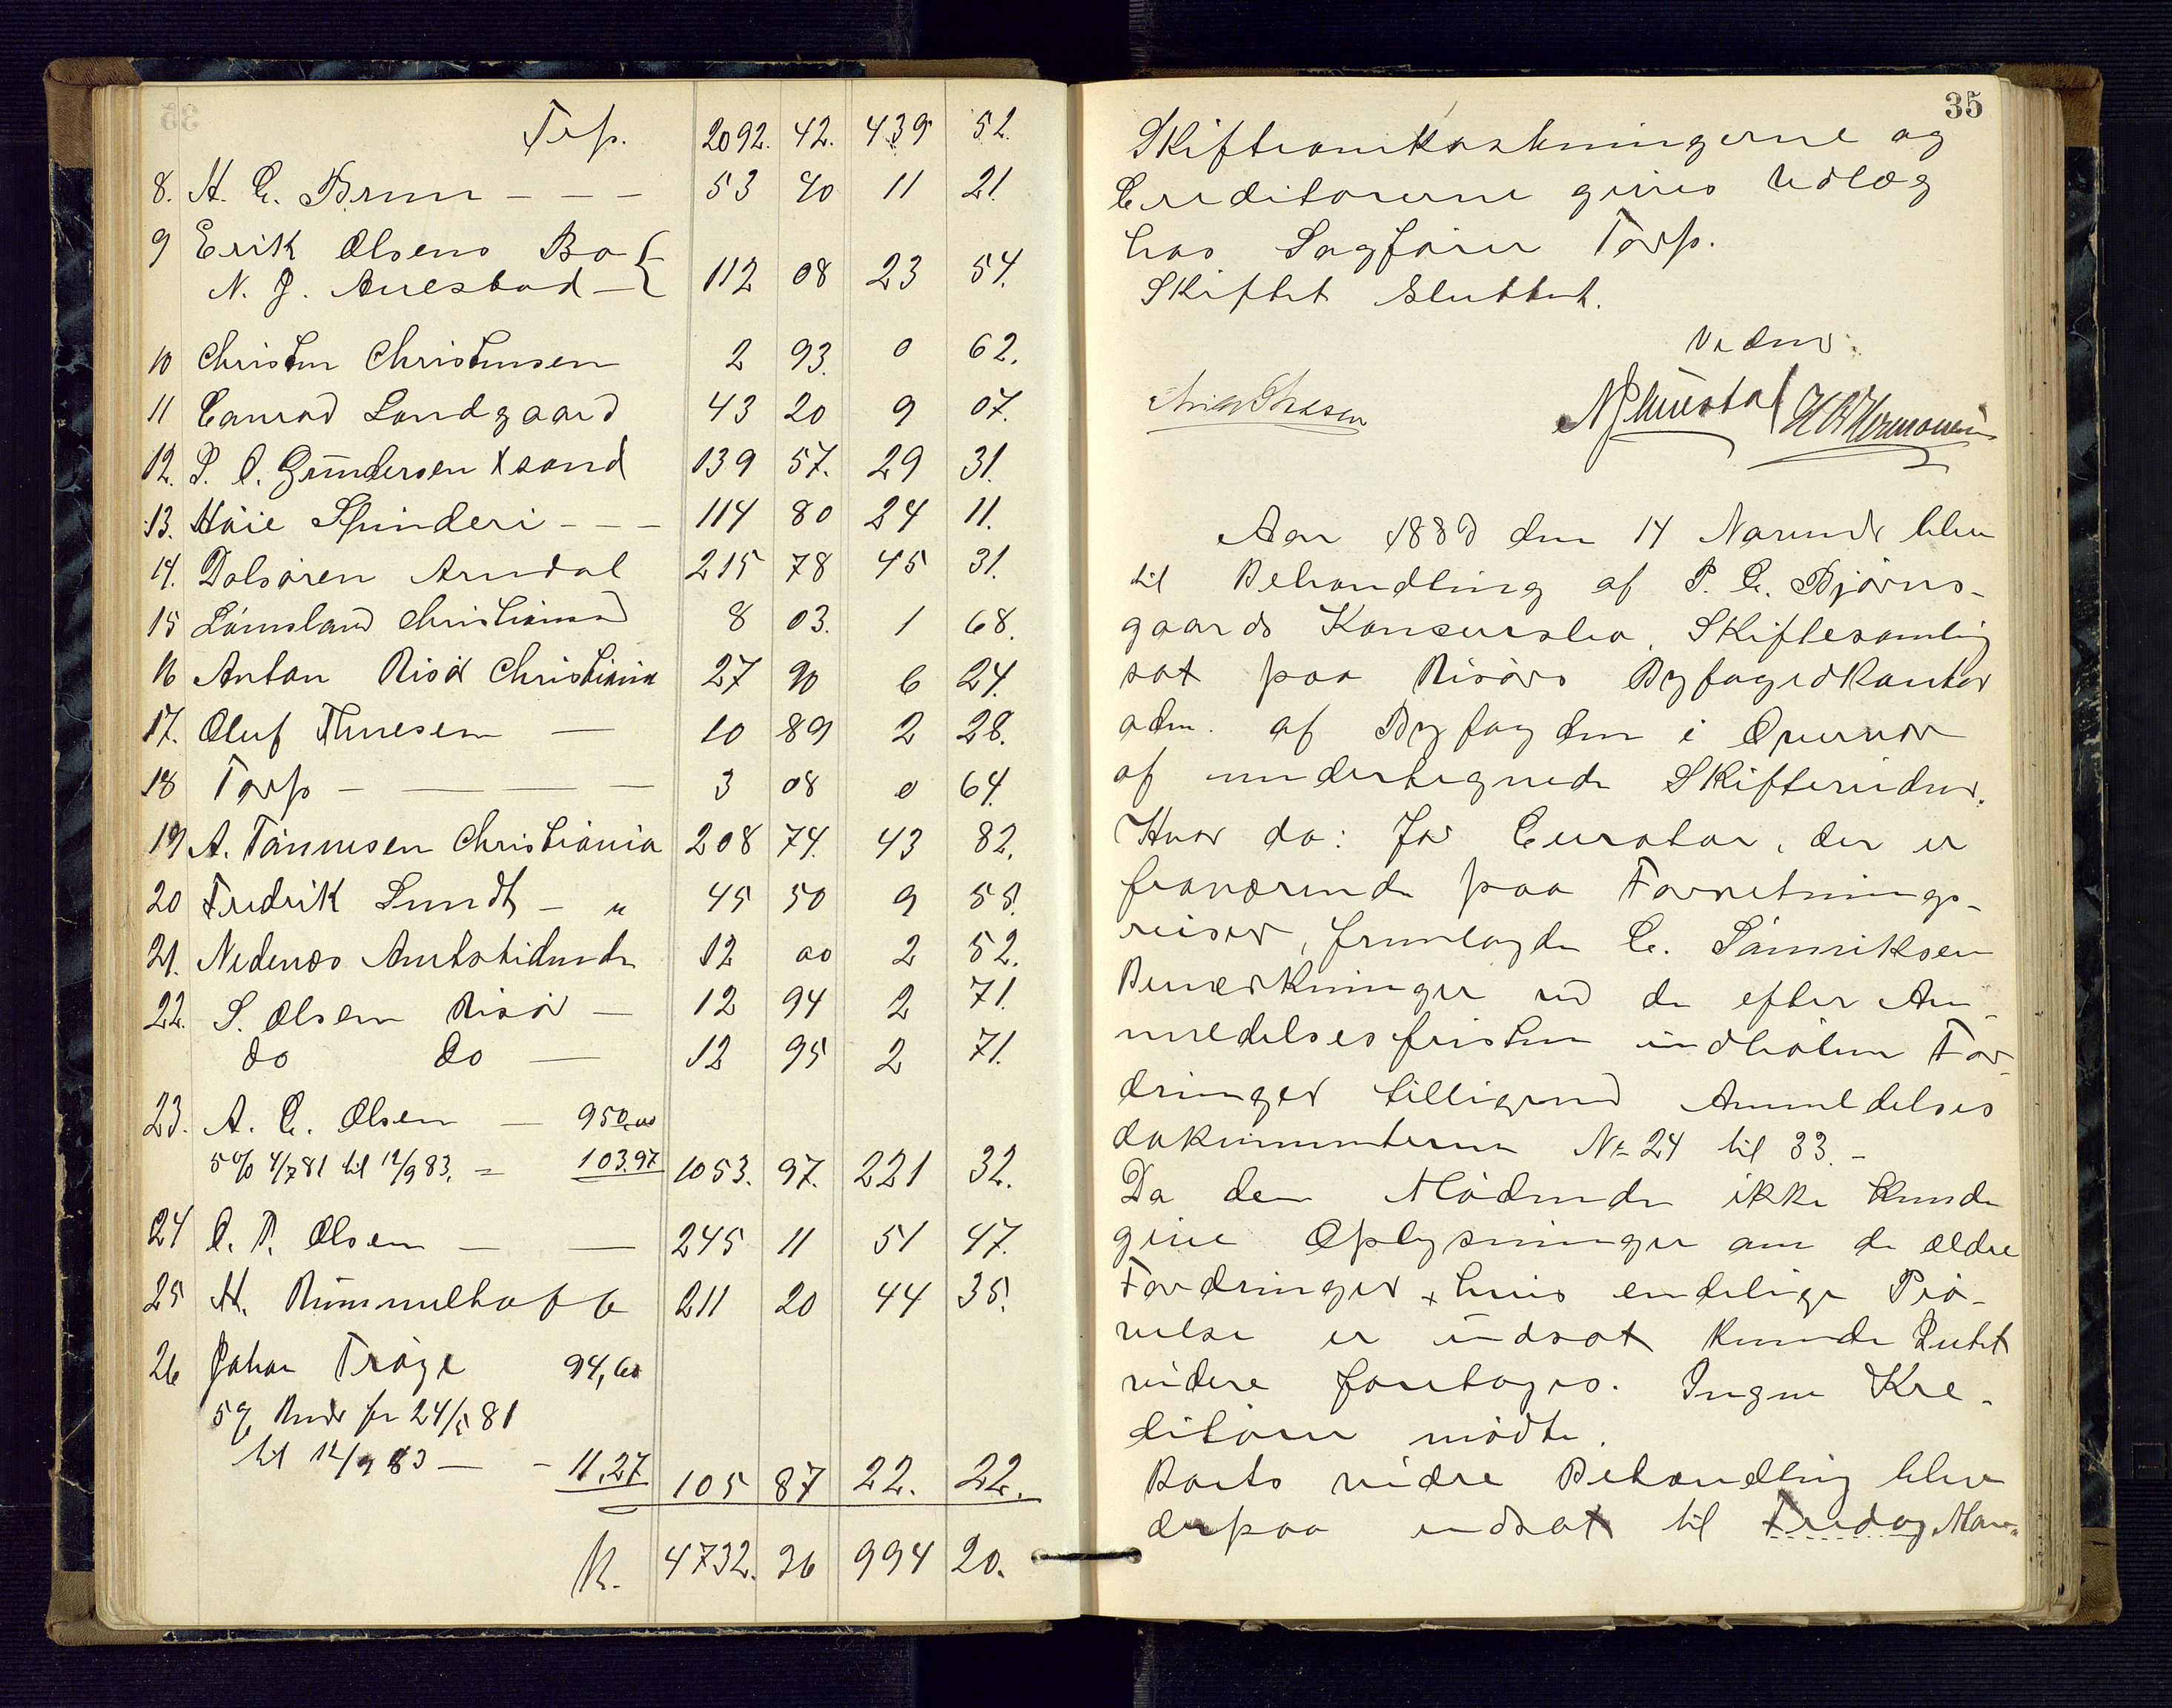 Trsp. 2092. 42. 439 52.
8. H. C. Brun - - - 53 40 11 21.
9 Erik Olsens Bo
N. J. Auesbad 112 08 23 54.
10 Christen Christensen 2 93. 0 62.
11 Conrad Londgaard 43 20 9 07.
12. P. O. Gundersen Xsand 139 57. 29 31.
13. Høie Spinderi - - - 114 80 24 11.
14. Dalsøren Arendal 215 78 45 31.
15 Lømsland Christiansd 8 03. 1 68.
16 Anton Risør Christiania 27 90 6 24.
17. Oluf Thuesen — 10 89 2 28.
18 Torp - — — — 3 08 0 64.
19 A. Tønnesen Christiania 208 74. 43 82.
20 Fredrik Lundt - " 45 50 9 55.
21. Nedenæs Amtstidende 12 00 2 52.
22. S. Olsen Risør — 12 94 2 71.
do do — 12 95 2 71.
23. A. C. Olsen — 950,00
5% 4/7 81 til 12/9 83. = 103.97 1053. 97. 221 32.
24 O. P. Olsen — — 245 11 51 47.
25 H. Rummelhoff 211 20 44 35.
26 Johan Trøge 94,60
5% Rente fr 24/5 81
til 12/9 83 — - 11,27 105 87 22. 22.
K. 4732. 36 994 20.
35
Skifteomkostningerne og
Creditorerne gives Udlæg
hos Sagfører Torp.
Skiftet sluttet.
Vidner:
Aar 1883 den 14 Novembr blev
til Behandling af P. C. Bjørns-
gaards Konkursbo, Skiftesamling
sat paa Risørs Byfogedkontor
adm. af Byfogden i Overvær
af undertegnede Skiftevidner.
Hvor da: For Curator, der er
fraværende paa Forretnings-
reiser, fremlagde C. Tønniksen
Bemærkninger ved de efter An-
meldelsesfristen indholdne For-
dringer tilligemed Anmeldelses
dokumenterne No 24 til 33.-
Da den Mødende ikke kunde
give Oplysninger om de ældre
Fordringer, hvis endelige Prø-
velse er udsat kunde Intet
videre foretages. Ingen Kre-
ditorer mødte.
Boets vidre Behandling blev
derpaa udsat til Fredag